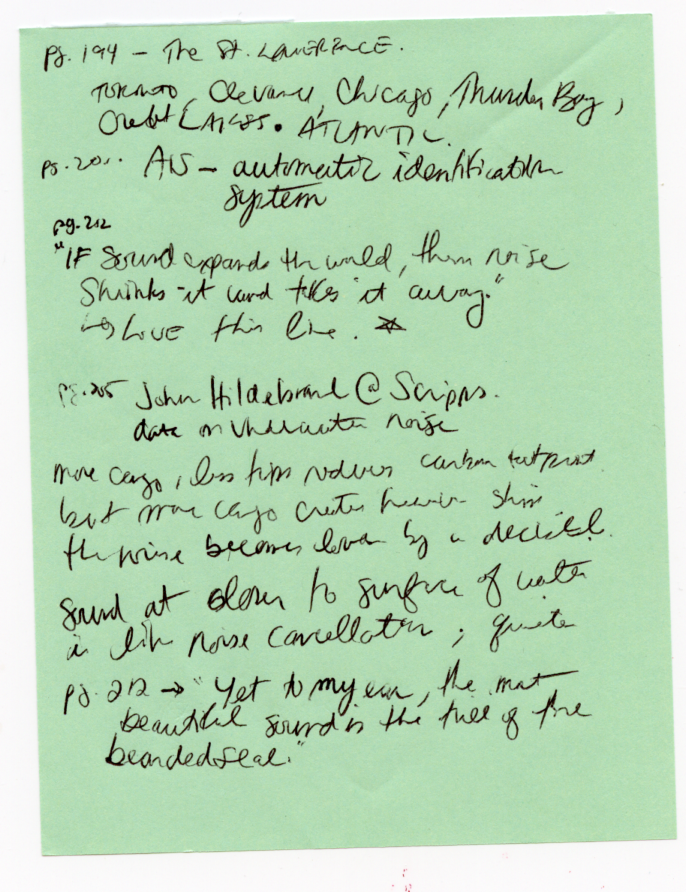 pg. 194 – The St. LAWERENCE.
TORONTO, Clevand, Chicago, Thunder Bay,
Great LAKES. ATLANTIC.
pg. 201. AIS – automatic identification
system
pg. 212
"IF Sound expands the world, then noise
Shrinks it and takes it away."
→ LOVE this line. ☆
pg. 205 John Hildebrand @ Scripps.
data on Underwater noise
more cargo, less trips reduces carbon footprint
but more cargo creates heavier ships
the noise becomes lower by a decibel.
Sound at closer to surface of water
is like noise cancellation; quieter
pg. 212 → "Yet to my ear, the most
beautiful sound is the trill of the
bearded seal."